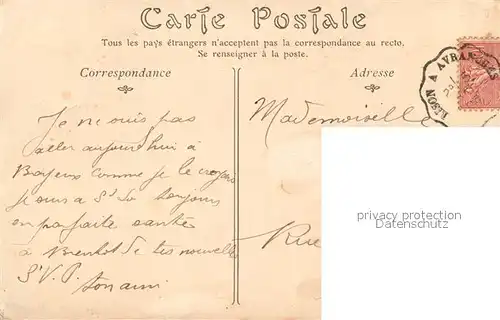 Carte Postale
Tous les pays étrangers n'acceptent pas la correspondance au recto.
Se renseigner à la poste.
Correspondance
Adresse
LISON A AVRANCHES
Je ne puis pas
aller aujourd'hui à
Bayeux comme je le croyais
je suis a St Lo toujours
en parfaite santé
à Bientot de tes nouvelle
S.V.P.
ton ami
Mademoiselle
Rue
privacy protection
Datenschutz